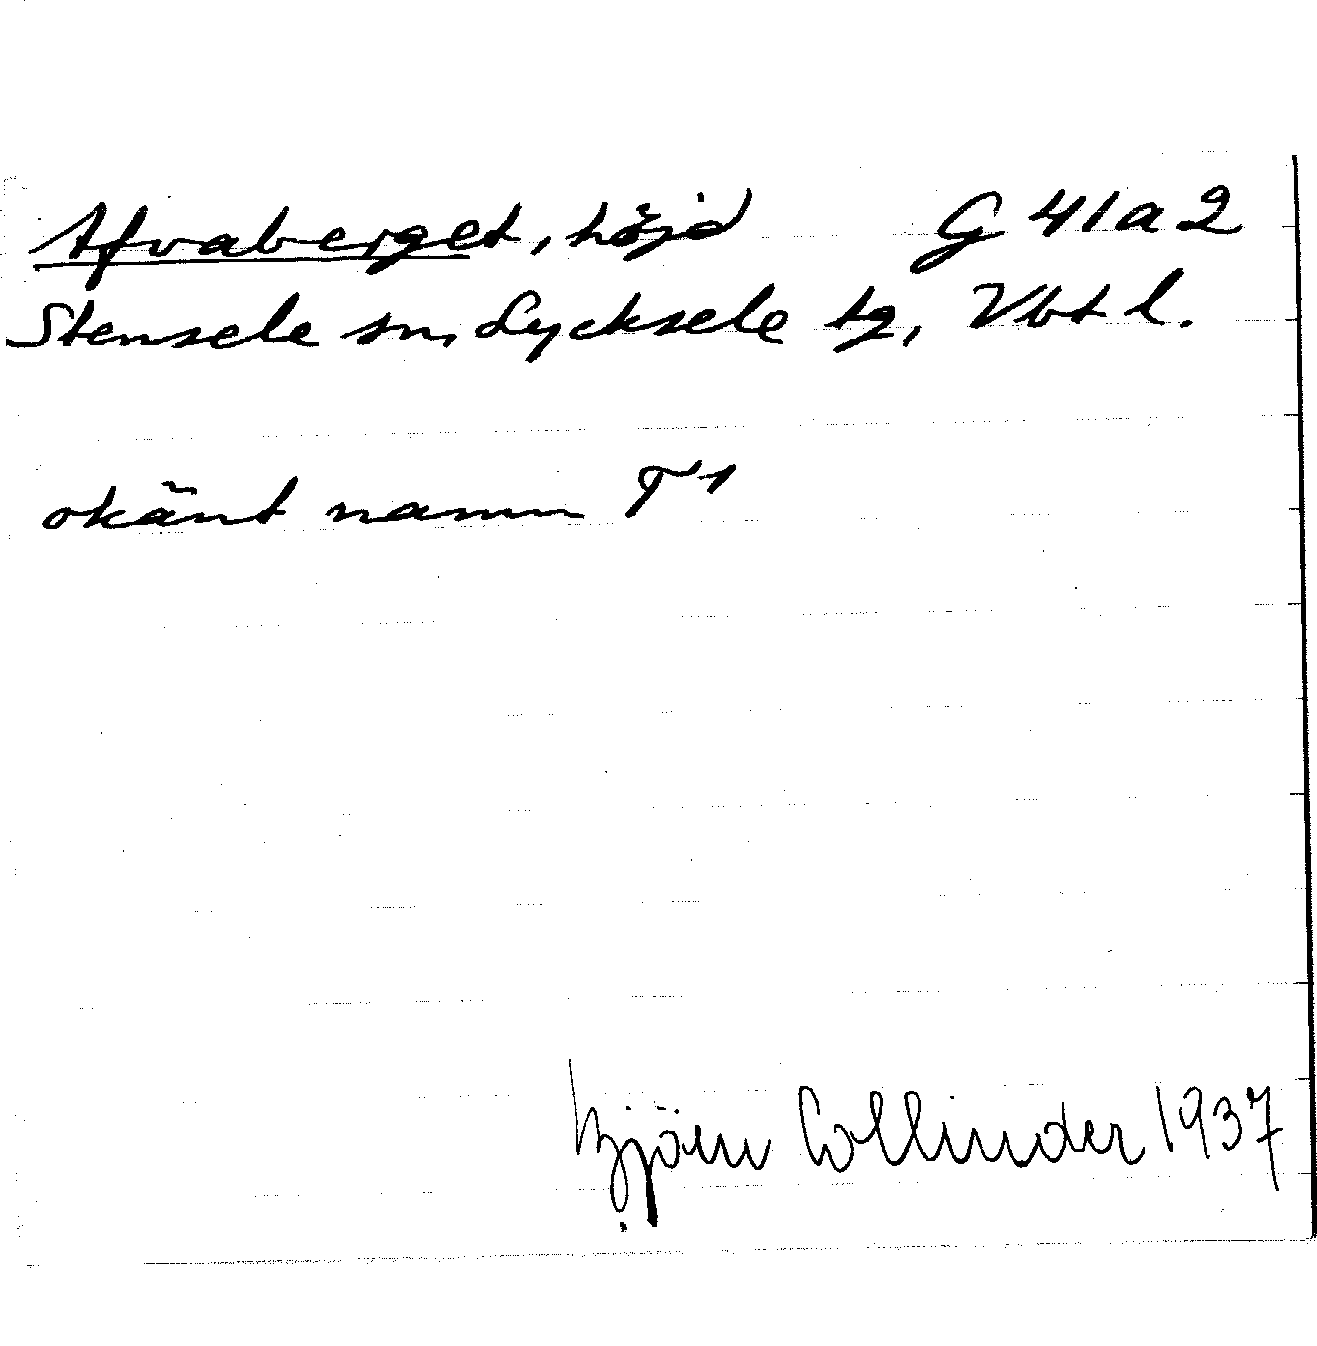 Afvaberget, höjd G 41 a 2
Stensele sn, Lycksele tg, Vbt l.
okänt namn T1
Björn Collinder 1937